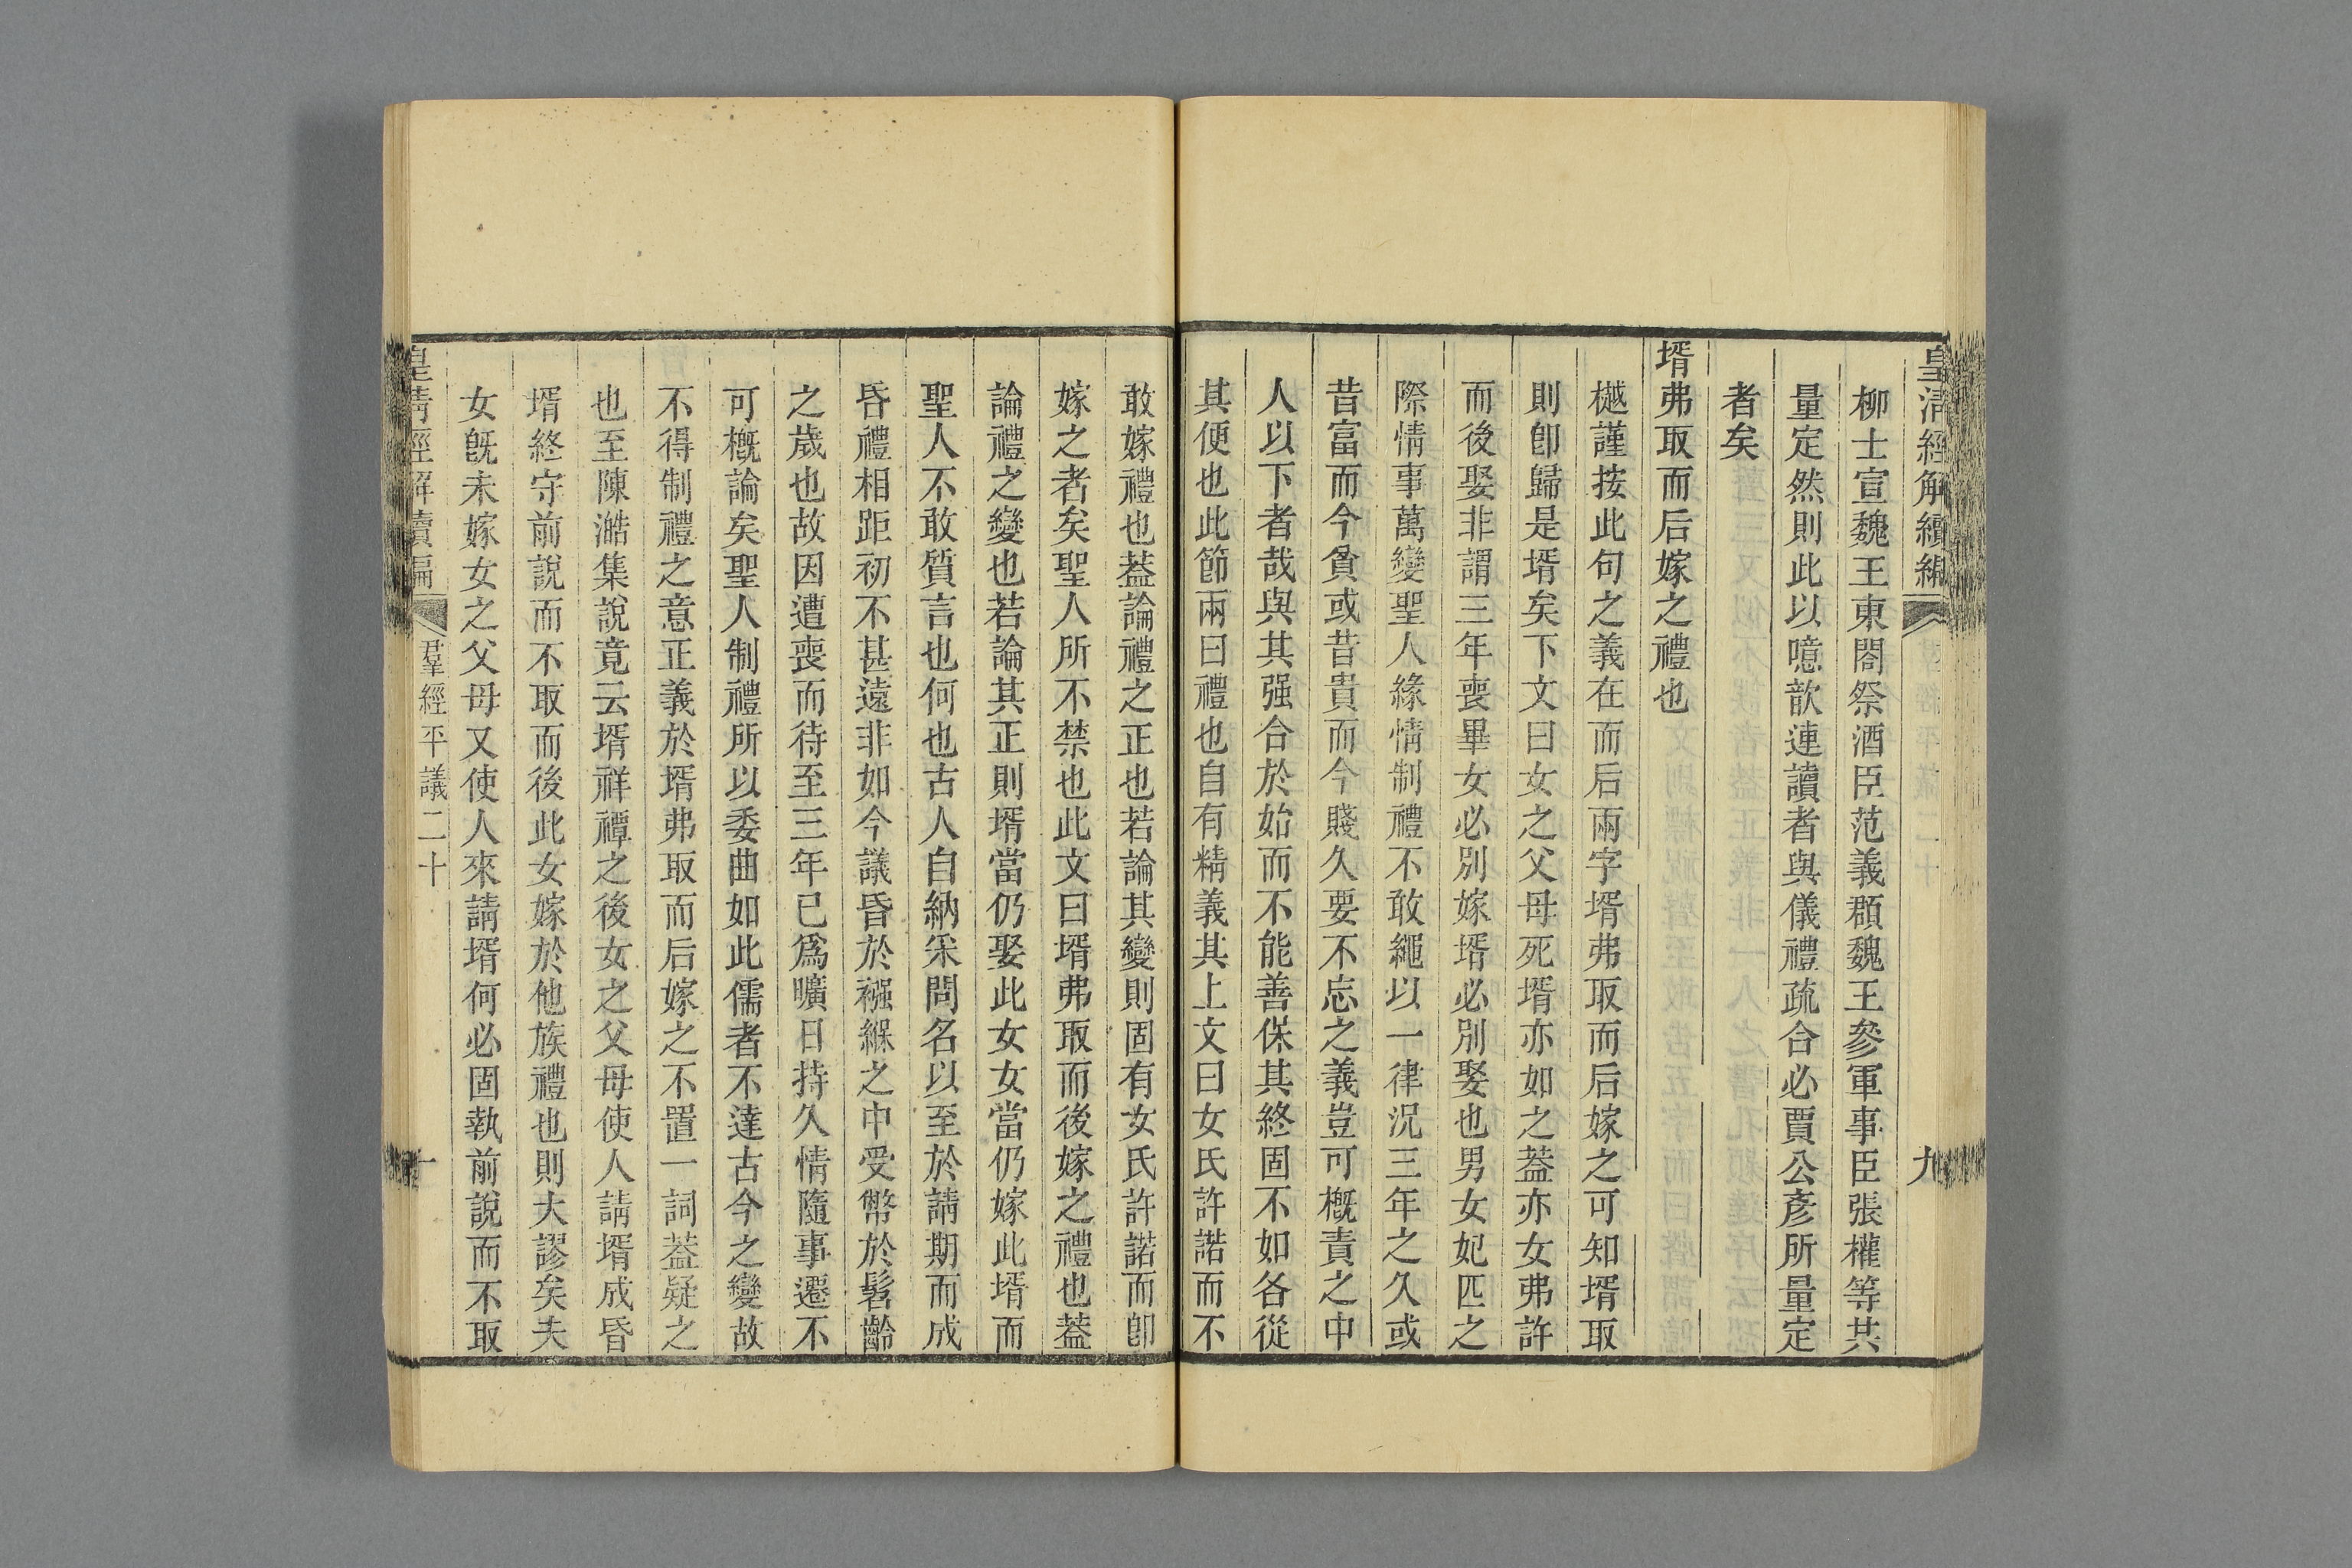 皇清經解續編
九
柳士宣魏王東閤祭酒臣范義頵魏王參軍事臣張權等共
量定然則此以噫歆連讀者與儀禮疏合必賈公彥所量定
者矣
壻弗取而后嫁之禮也
樾謹按此句之義在而后兩字壻弗取而后嫁之可知壻取
則卽歸是壻矣下文曰女之父母死壻亦如之葢亦女弗許
而後娶非謂三年喪畢女必別嫁壻必別娶也男女妃匹之
際情事萬變聖人緣情制禮不敢繩以一律況三年之久或
昔富而今貧或昔貴而今賤久要不忘之義豈可槪責之中
人以下者哉與其强合於始而不能善保其終固不如各從
其便也此節兩曰禮也自有精義其上文曰女氏許諾而不
敢嫁禮也葢論禮之正也若論其變則固有女氏許諾而卽
嫁之者矣聖人所不禁也此文曰壻弗取而後嫁之禮也葢
論禮之變也若論其正則壻當仍娶此女女當仍嫁此壻而
聖人不敢質言也何也古人自納采問名以至於請期而成
昏禮相距初不甚遠非如今議昏於襁緥之中受幣於髫齡
之歲也故因遭喪而待至三年已爲曠日持久情隨事遷不
可槪論矣聖人制禮所以委曲如此儒者不達古今之變故
不得制禮之意正義於壻弗取而后嫁之不置一詞葢疑之
也至陳澔集說竟云壻祥禫之後女之父母使人請壻成昏
壻終守前說而不取而後此女嫁於他族禮也則大謬矣夫
女旣未嫁女之父母又使人來請壻何必固執前說而不取
皇清經解續編
羣經平議二十